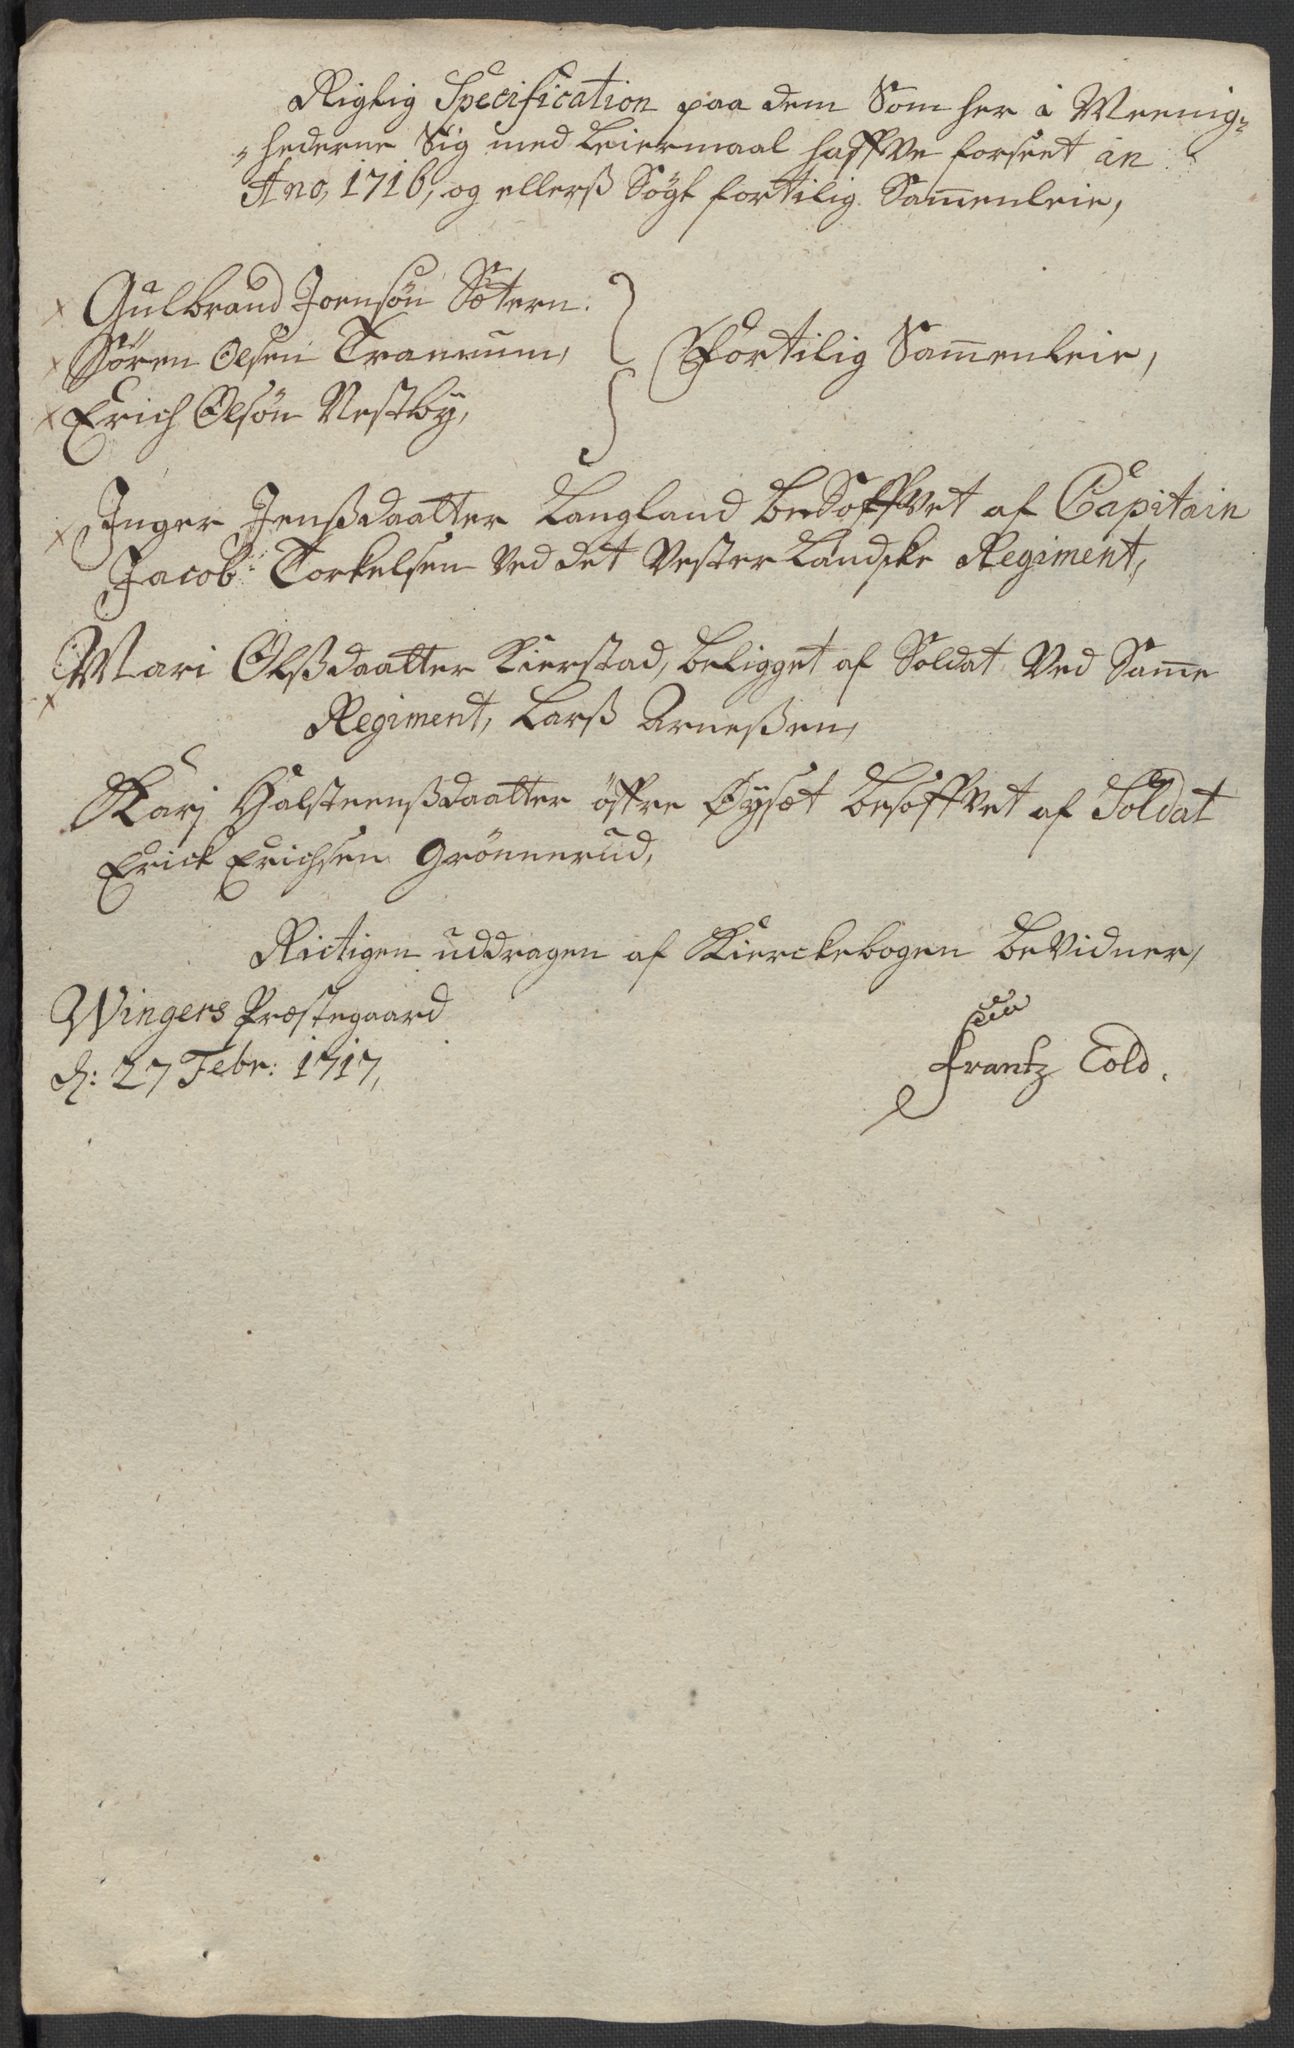 Rigtig Specification paa dem Som her i Meenig-
hederne Sig med Leiermaal haffve forseet in
Ano, 1716, og ellerß Søgt fortilig Sam̄enleie,
x Gulbrand Joensøn Sætern.
x Sören Olsen Tranrum, Fortilig Sam̄enleie,
x Erich Olsøn Vestby,
x Inger Jenßdaatter Langland besoffvet af Capitain
Jacob Torkelsen Ved det Vester Landske Regiment,
x Mari Olßdaatter Kierstad, beligget af Soldat Ved Sam̄e
Regiment, Larß Arneßen,
Karj Halsteenßdaatter öffre Øysæt besoffvet af Soldat
Erick Erichsen Grönnerud,
Rictigen uddragen af Kierckebogen beVidner,
Wingers Præstegaard
d: 27 Febr: 1717,
Frantz Cold.